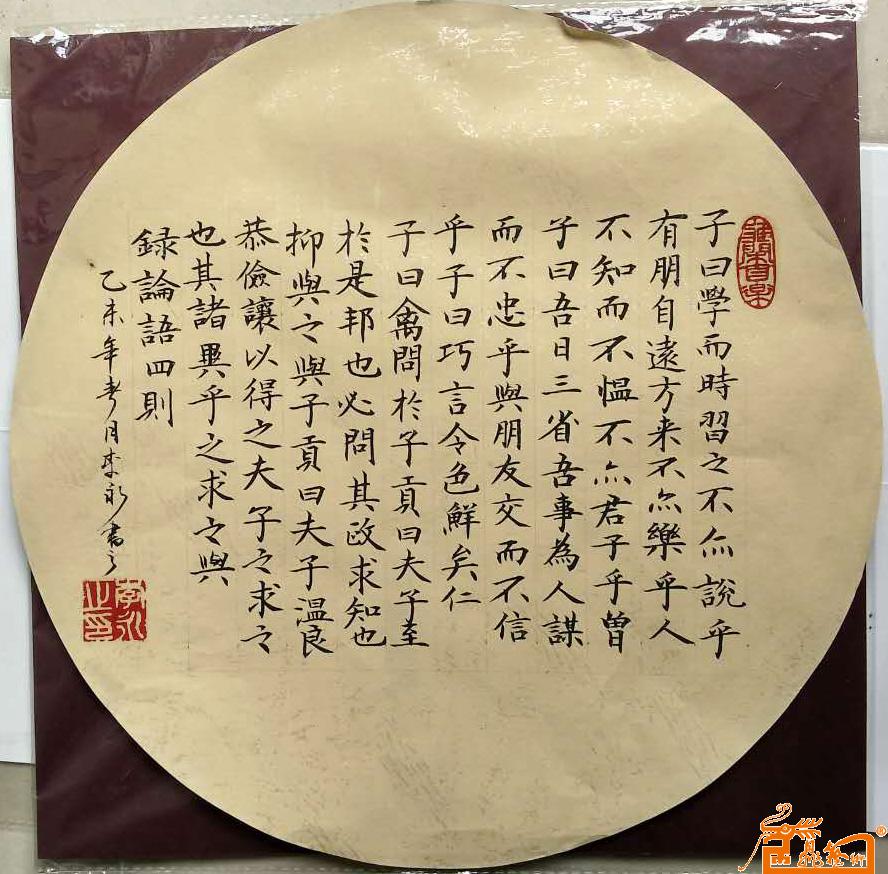 子曰學而時習之不亦說乎
有朋自遠方来不亦樂乎人
不知而不愠不亦君子乎曾
子曰吾日三省吾事為人謀
而不忠乎與朋友交而不信
乎子曰巧言令色鮮矣仁
子曰禽問於子貢曰夫子至
於是邦也必問其政求知也
抑與之與子貢曰夫子温良
恭儉讓以得之夫子之求之
也其諸異乎之求之與
録論語四則
乙未年
月
永書